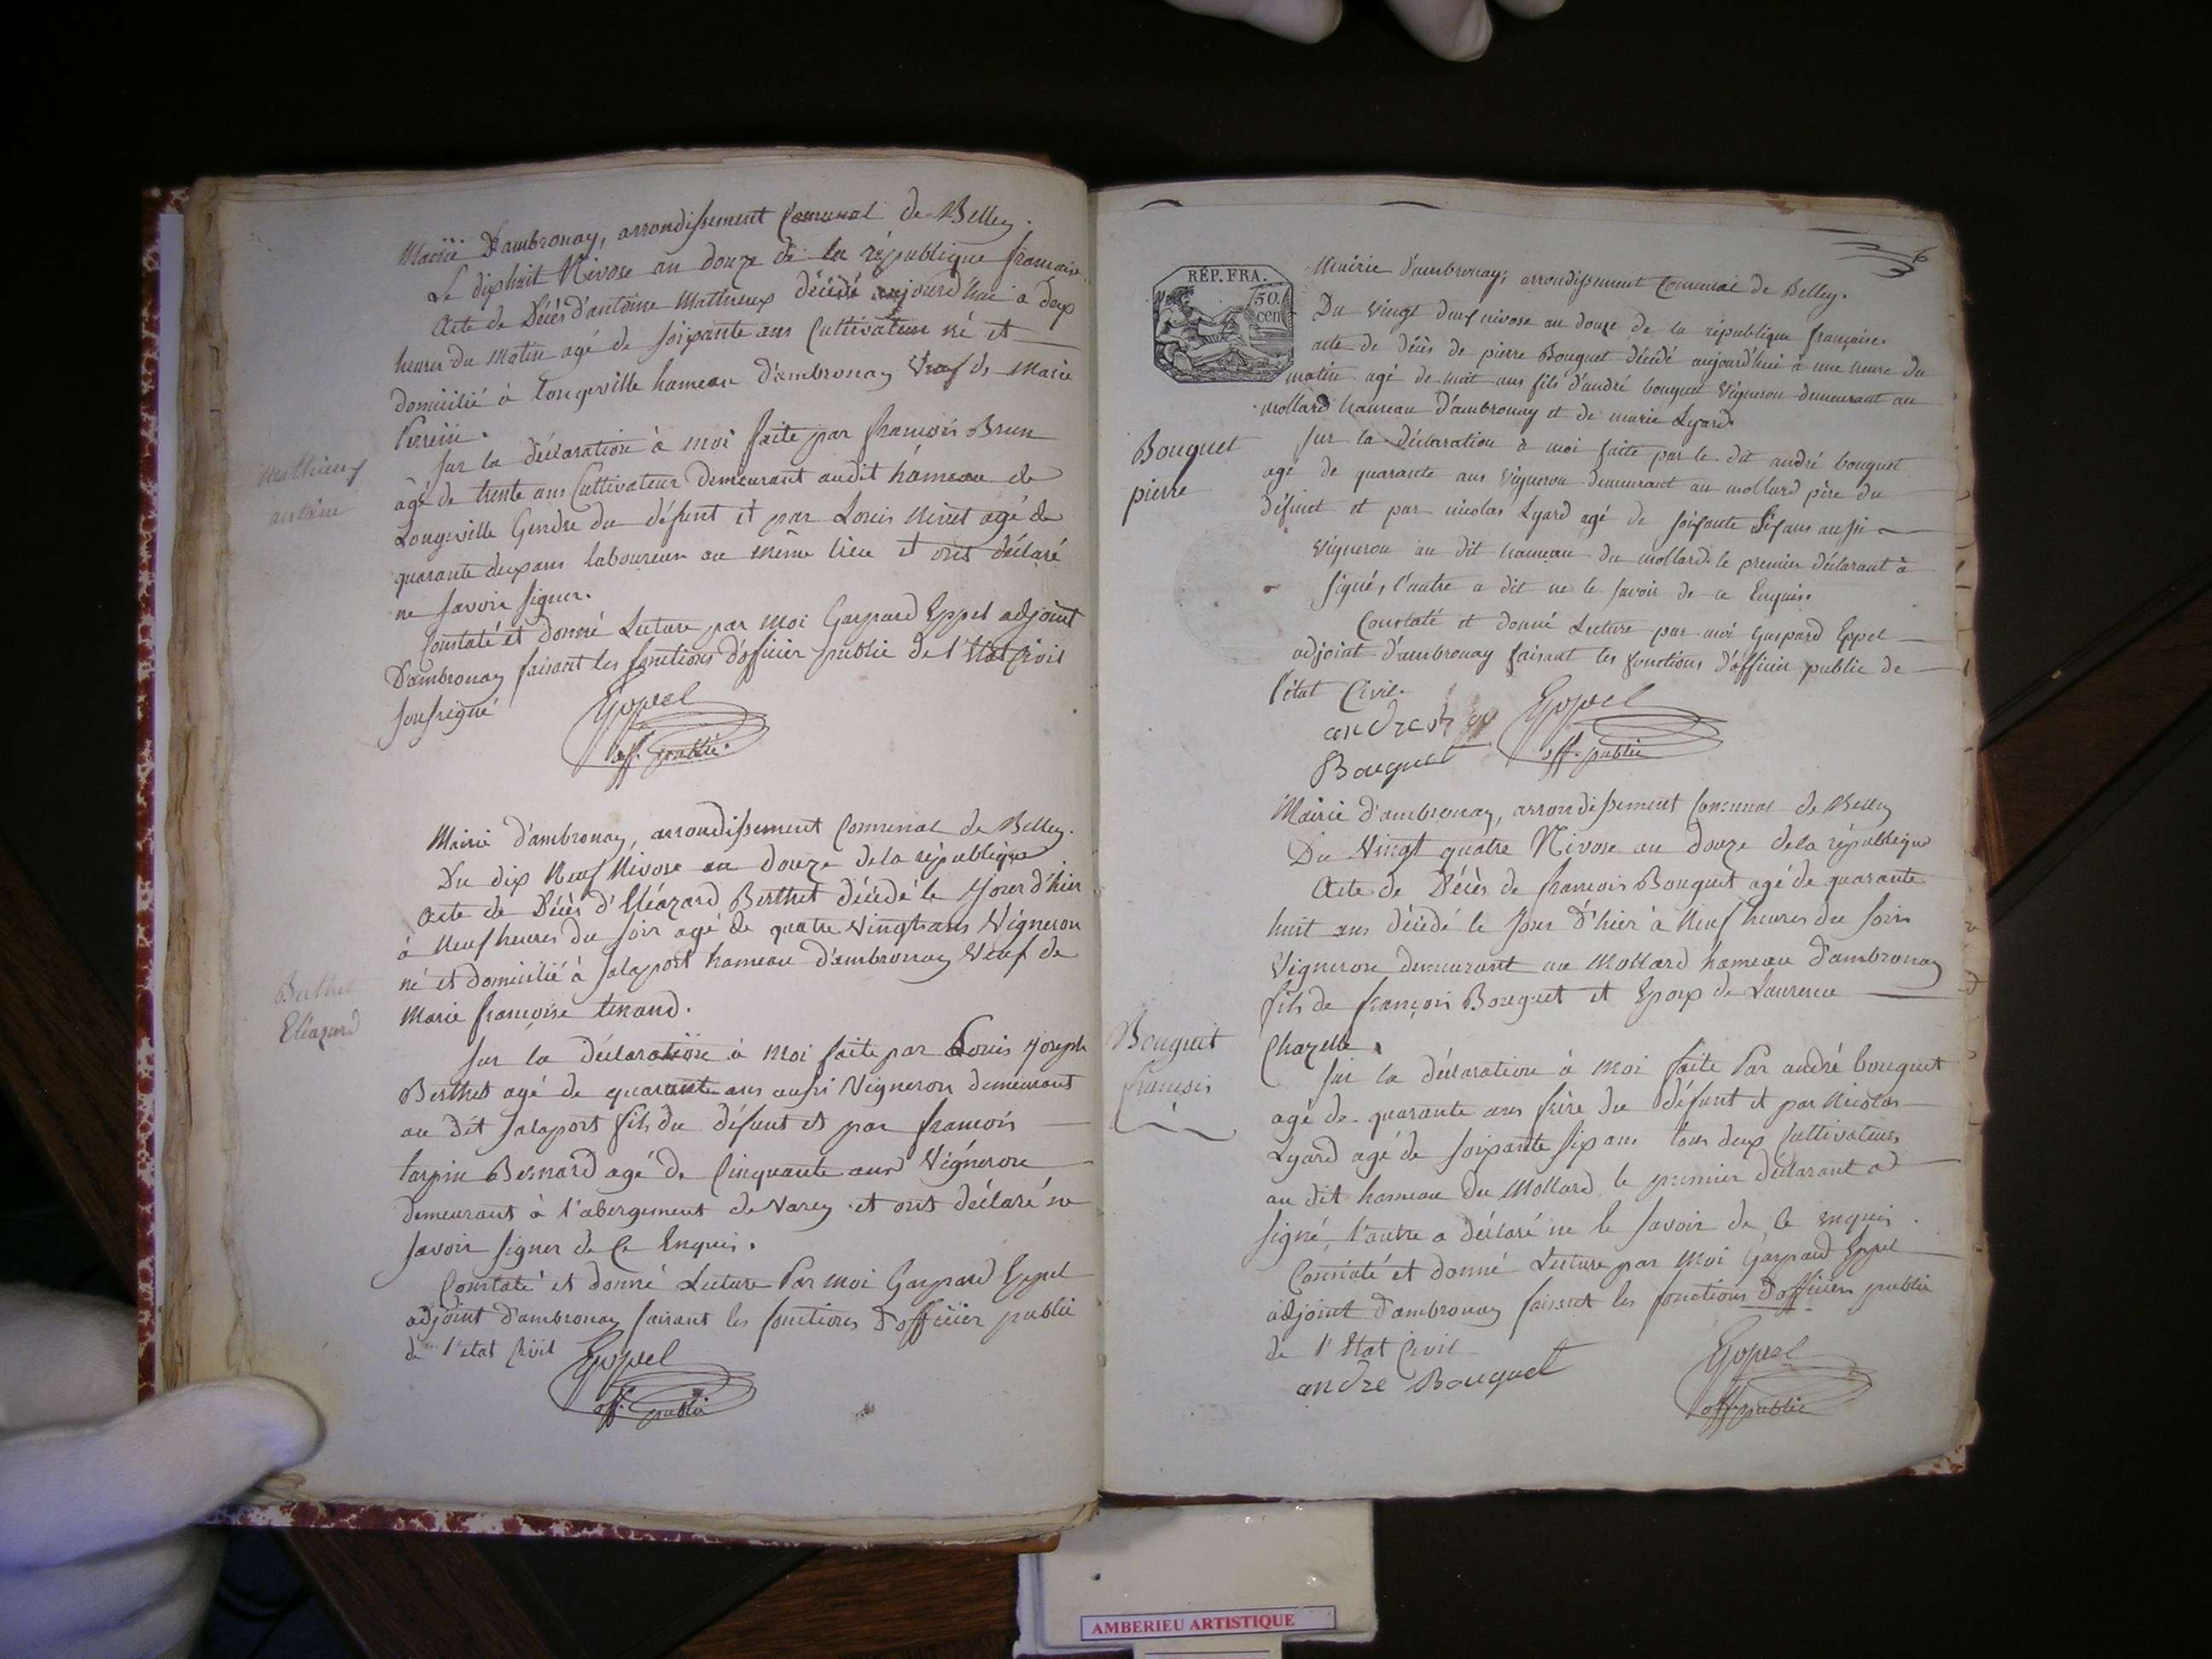 Mairie D'ambronay, arrondissement Comunal de Belley.
Le dixhuit Nivose an douze de la république francaise
Acte de Décès d'antoine Mathieux décédé aujourd'hui a deux
heures du matin agé de soixante ans Cultivateur né et
domicilié à Longeville hameau d'ambronay Veuf de Marie
Perrin.
mathieux
antoine
Sur la déclaration à moi faite par francois Brun
âgé de trente ans Cultivateur demeurant audit hameau de
Longeville Gendre du défunt et par Louis Ninet agé de
quarante deux ans laboureur au même lieu et ont déclaré
ne savoir signer.
Constaté et donné Lecture par moi Gaspard Eppel adjoint
D'ambronay faisant les fonctions d'officier public de l'Etat Civil
soussigné
Eppel
off. public.
Mairie d'ambronay, arrondissement Communal de Belley.
Du dix Neuf Nivose an douze de la république
Acte de Décès d'Eléazard Berthet décédé le Jour d'hier
à Neuf heures du soir agé de quatre Vingts ans Vigneron
né et domicilié à Salaport hameau d'ambronay Veuf de
Marie francoise tenand.
Berthet
Eléazard
Sur la déclaration à moi faite par Louis Joseph
Berthet agé de quarante ans aussi Vigneron demeurant
au dit Salaport fils du défunt et par francois
tarpin Bernard agé de Cinquante ans Vigneron
demeurant à l'abergement de Varey et ont déclaré ne
savoir signer de Ce Enquis.
Constaté et donné Lecture Par moi Gaspard Eppel
adjoint d'ambronay faisant les fonctions d'officier public
de l'etat Civil
Eppel
off. public
6
RÉP. FRA.
50.
cen
Mairie d'ambronay, arrondissement Communal de Belley.
Du vingt deux nivose an douze de la république française.
acte de décès de pierre Bouquet décédé aujourd'hui à une heure du
matin agé de huit ans fils d'andré bouquet Vigneron demeurant au
mollard hameau d'ambronay et de marie Lyard.
Bouquet
pierre
Sur la déclaration à moi faite par le dit andré bouquet
agé de quarante ans Vigneron demeurant au mollard père du
défunt et par nicolas Lyard agé de soixante six ans aussi
vigneron au dit hameau du mollard. le premier déclarant à
signé, l'autre a dit ne le savoir de ce Enquis.
Constaté et donné Lecture par moi Gaspard Eppel
adjoint d'ambronay faisant les fonctions d'officier public de
l'état Civil.
andre
Bouquet
Eppel
off. public
Mairie d'ambronay, arrondissement Communal de Belley
Du Vingt quatre Nivose an douze de la république
Acte de Décès de francois Bouquet agé de quarante
huit ans décédé le Jour d'hier à Neuf heures du soir
Vigneron demeurant au Mollard hameau d'ambronay
fils de françois Bouquet et Epoux de Laurence
Chazelle.
Bouquet
francois
Sur la déclaration à moi faite Par andré bouquet
agé de quarante ans frère du défunt et par Nicolas
Lyard agé de soixante six ans tous deux Cultivateurs
au dit hameau du Mollard, le premier déclarant a
signé, l'autre a déclaré ne le savoir de Ce enquis.
Constaté et donné Lecture par moi Gaspard Eppel
adjoint d'ambronay faisant les fonctions d'officier public
de l'Etat Civil
andre Bouquet
Eppel
off. public
AMBERIEU ARTISTIQUE